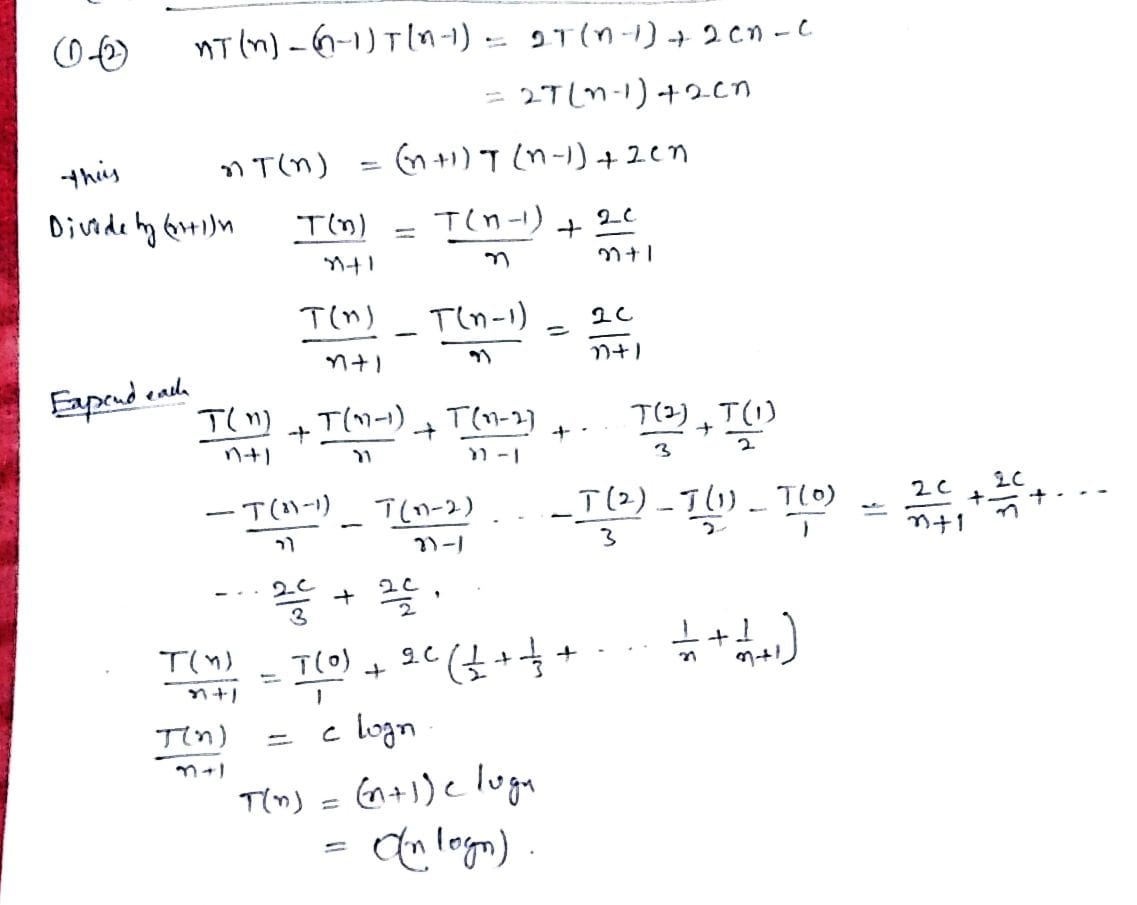 ①-② nT(n) - (n-1)T(n-1) = 2T(n-1) + 2cn - c
= 2T(n-1) + 2cn
this nT(n) = (n+1)T(n-1) + 2cn
Divide by (n+1)n T(n)/n+1 = T(n-1)/n + 2c/n+1
T(n)/n+1 - T(n-1)/n = 2c/n+1
Expend each
T(n)/n+1 + T(n-1)/n + T(n-2)/n-1 + .. T(2)/3 + T(1)/2
- T(n-1)/n - T(n-2)/n-1 .. - T(2)/3 - T(1)/2 - T(0)/1 = 2c/n+1 + 2c/n + ...
... 2c/3 + 2c/2 ,
T(n)/n+1 = T(0)/1 + 2c (1/2 + 1/3 + .... 1/n + 1/n+1)
T(n)/n+1 = c logn.
T(n) = (n+1) c logn
= O(n logn).